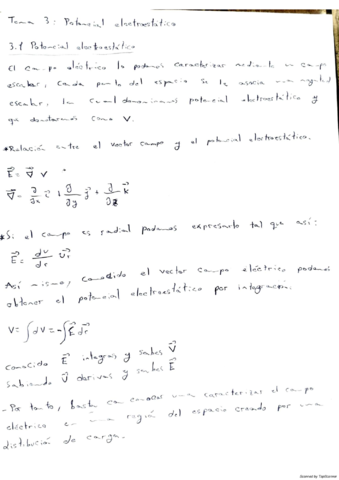 Tema 3: Potencial electroestático
3.1 Potencial electroestático
El campo eléctrico lo podemos caracterizar mediante un campo
escalar, cada punto del espacio se le asocia una magnitud
escalar, la cual denominamos potencial electroestático y
que denotaremos como V.
*Relación entre el vector campo y el potencial electroestático.
E⃗ = ∇⃗ V
∇⃗ = ∂/∂x i⃗ + ∂/∂y j⃗ + ∂/∂z k⃗
*Si el campo es radial podemos expresarlo tal que así:
E⃗ = dV/dr u⃗r
Así mismo, conocido el vector campo eléctrico podemos
obtener el potencial electroestático por integración.
V = ∫dV = -∫E⃗ dr⃗
conocido E⃗ integras y sabes V⃗
Sabiendo V⃗ derivas y sabes E⃗
- Por tanto, basta con conocer una caracterizar el campo
eléctrico en una región del espacio creado por una
distribución de carga.
Scanned by TapScanner